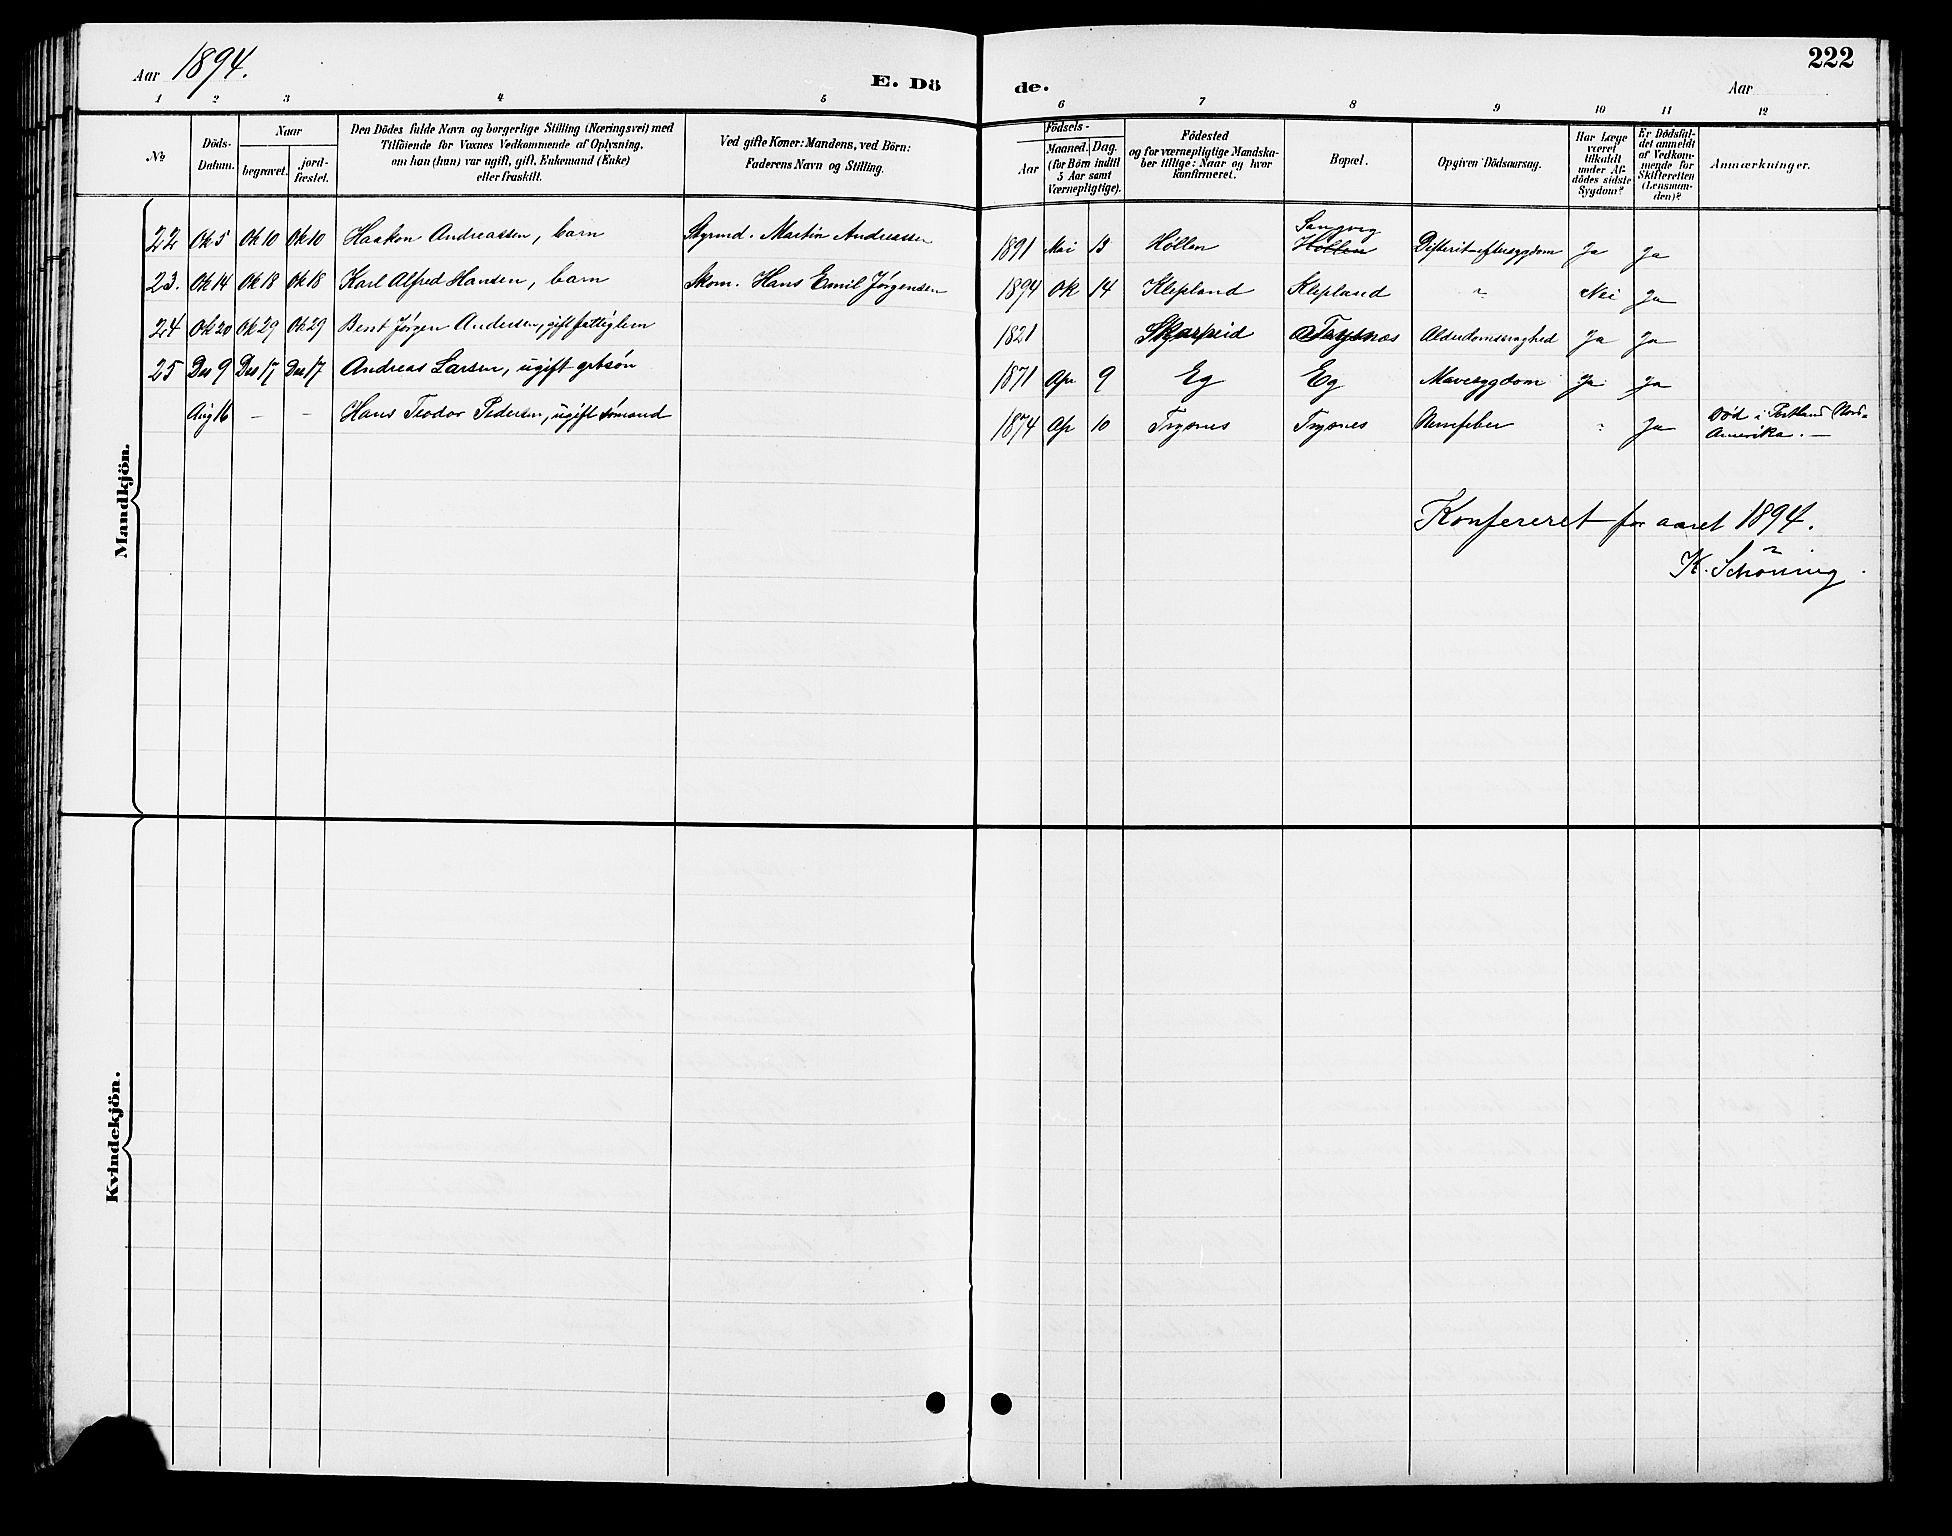 Aar 1894.
E. Dö
de.
222
Aar
1 2 3 4 5 6 7 8 9 10 11 12
No
Döds-
Datum.
Naar
begravet.
jord-
fæstet.
Den Dödes fulde Navn og borgerlige Stilling (Næringsvei) med
Tilföiende for Voxnes Vedkommende af Oplysning,
om han (hun) var ugift, gift, Enkemand (Enke)
eller fraskilt.
Ved gifte Koner: Mandens, ved Börn:
Faderens Navn og Stilling.
Födsels-
Aar
Maaned. Dag.
(for Börn indtil
5 Aar samt
Værnepligtige).
Födested
og for værnepligtige Mandska-
ber tillige: Naar og hvor
konfirmeret.
Bopæl.
Opgiven Dödsaarsag.
Har Læge
været
tilkaldt
under Af-
dödes sidste
Sygdom?
Er Dödsfal-
det anmeldt
af Vedkom-
mende for
Skifteretten
(Lensman-
den)?
Anmærkninger.
Mandkjön.
22 Ok 5 Ok 10 Ok 10 Haakon Andreassen, barn Styrmd. Martin Andreassen 1891 Mai 13 Höllen Höllen Difterit-eftersygdom Ja Ja
23. Ok 14 Ok 18 Ok 18 Karl Alfred Hansen, barn Skom. Hans Emil Jørgensen 1894 Ok 14 Klepland Klepland " Nei Ja
24 Ok 20 Ok 29 Ok 29 Bent Jørgen Andersen, gift fattiglem 1821 Skarpeid Trysnes Alderdomssvaghed Ja Ja
25 Des 9 Des 17 Des 17 Andreas Larsen, ugift grbsøn 1871 Ap 9 Eg Eg Mavesygdom Ja Ja
Aug 16 - - Hans Teodor Pedersen, ugift sømand 1874 Ap 10 Trysnes Trysnes Nervefeber " Ja Død i Portland Nord-
Amerika. —
Konfereret for aaret 1894.
K. Schöning.
Kvindekjön.